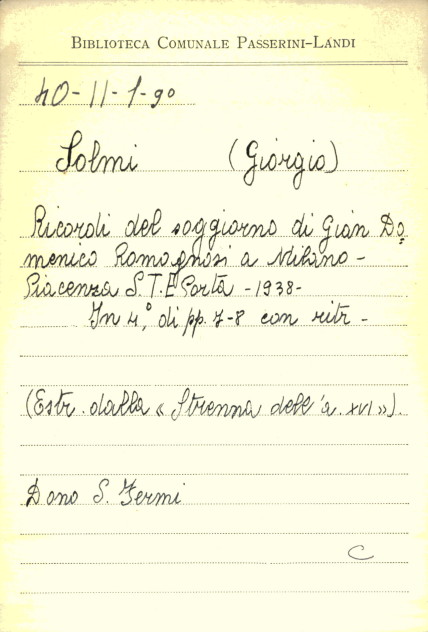 BIBLIOTECA COMUNALE PASSERINI-LANDI
40-II-1-90
Solmi (Giorgio)
Ricordi del soggiorno di Gian Do=
menico Romagnosi a Milano -
Piacenza S.T.E Porta - 1938 -
In 4,° di pp. 7-8 con ritr -
(Estr. dalla « Strenna dell'a. XVI »).
Dono S. Fermi
C